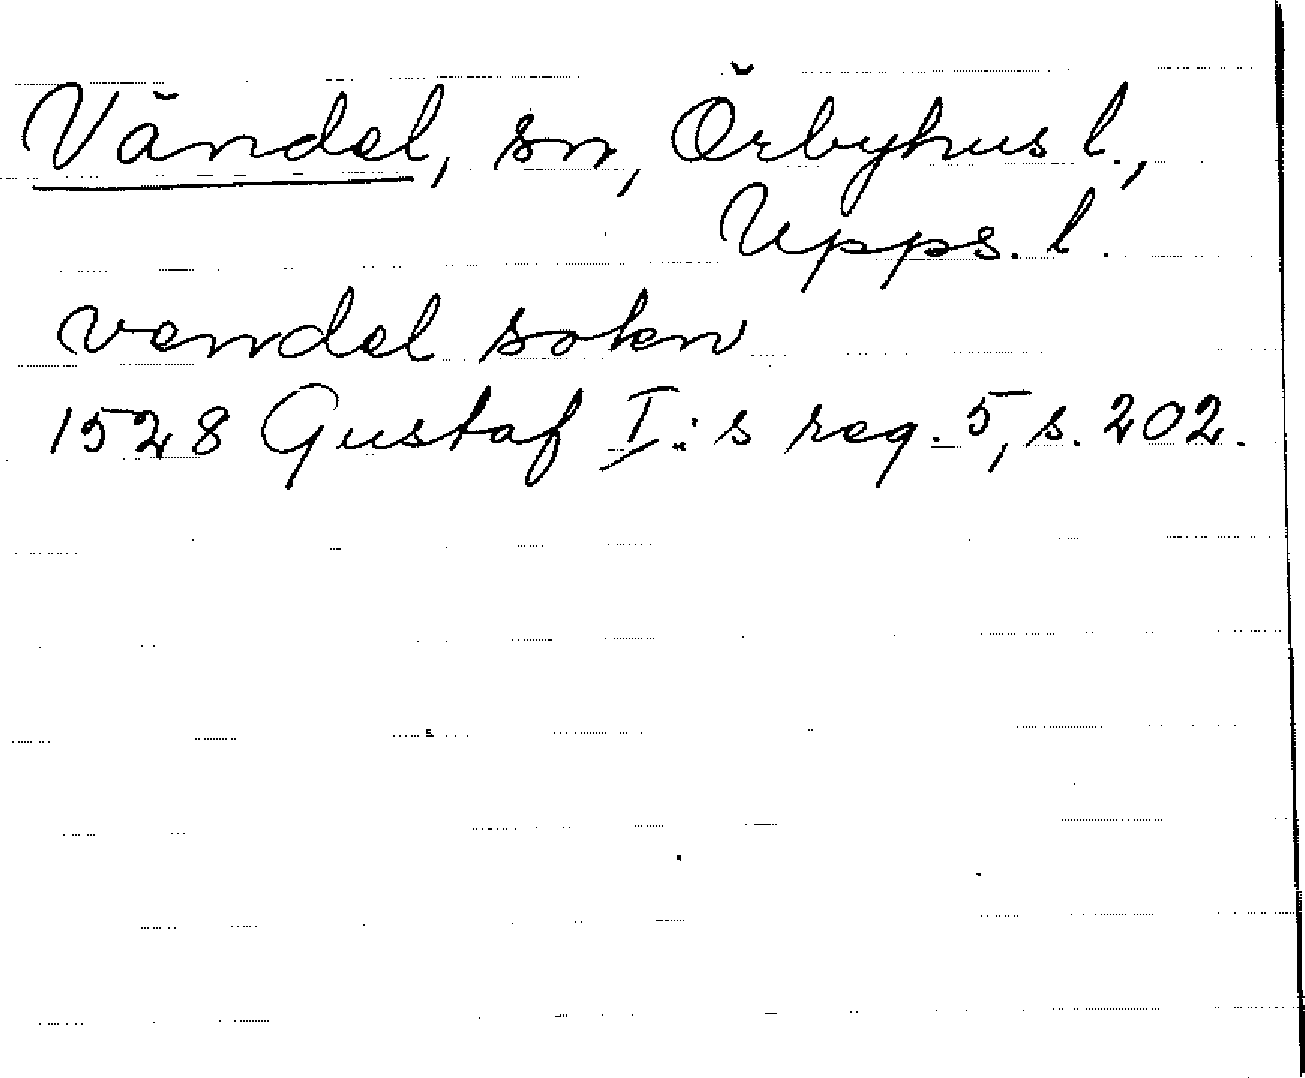 Vändel, sn, Örbyhus l.,
Upps. l.
vendel sokn
1528 Gustaf I:s reg. 5, s. 202.